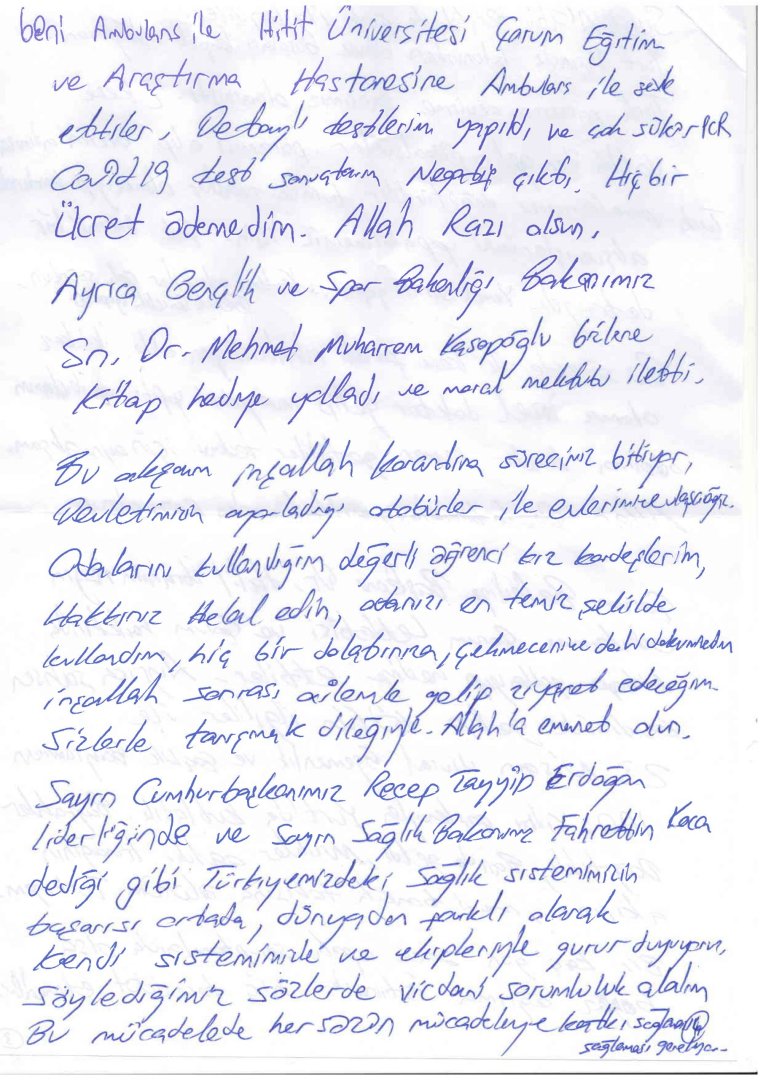 beni Ambulans ile Hitit Üniversitesi Çorum Eğitim
ve Araştırma Hastanesine Ambulans ile sevk
ettiler, Detaylı testlerim yapıldı, ve çok şükür PCR
Covid 19 test sonuçlarım Negatif çıktı. Hiçbir
Ücret ödemedim. Allah Razı olsun.
Ayrıca Gençlik ve Spor Bakanlığı Bakanımız
Sn. Dr. Mehmet Muharrem Kasapoğlu bizlere
Kitap hediye yolladı ve moral mektubu iletti.
Bu akşam inşallah karantina sürecimiz bitiyor,
Devletimizin ayarladığı otobüsler ile evlerimize ulaşacağız.
Odalarını kullandığım değerli öğrenci kız kardeşlerim,
Hakkınızı Helal edin, odanızı en temiz şekilde
kullandım, hiç bir dolabınıza, çekmecenize dahi dokunmadım
inşallah sonrası ailemle gelip ziyaret edeceğim.
Sizlerle tanışmak dileğiyle. Allah'a emanet olun.
Sayın Cumhurbaşkanımız Recep Tayyip Erdoğan
liderliğinde ve Sayın Sağlık Bakanımız Fahrettin Koca
dediği gibi Türkiyemizdeki Sağlık sistemimizin
başarısı ortada, dünyadan farklı olarak
kendi sistemimizle ve ekipleriyle gurur duyuyoruz,
Söylediğimiz sözlerde vicdani sorumluluk alalım
Bu mücadelede her sözün mücadeleye katkı
sağlaması gerekiyor.